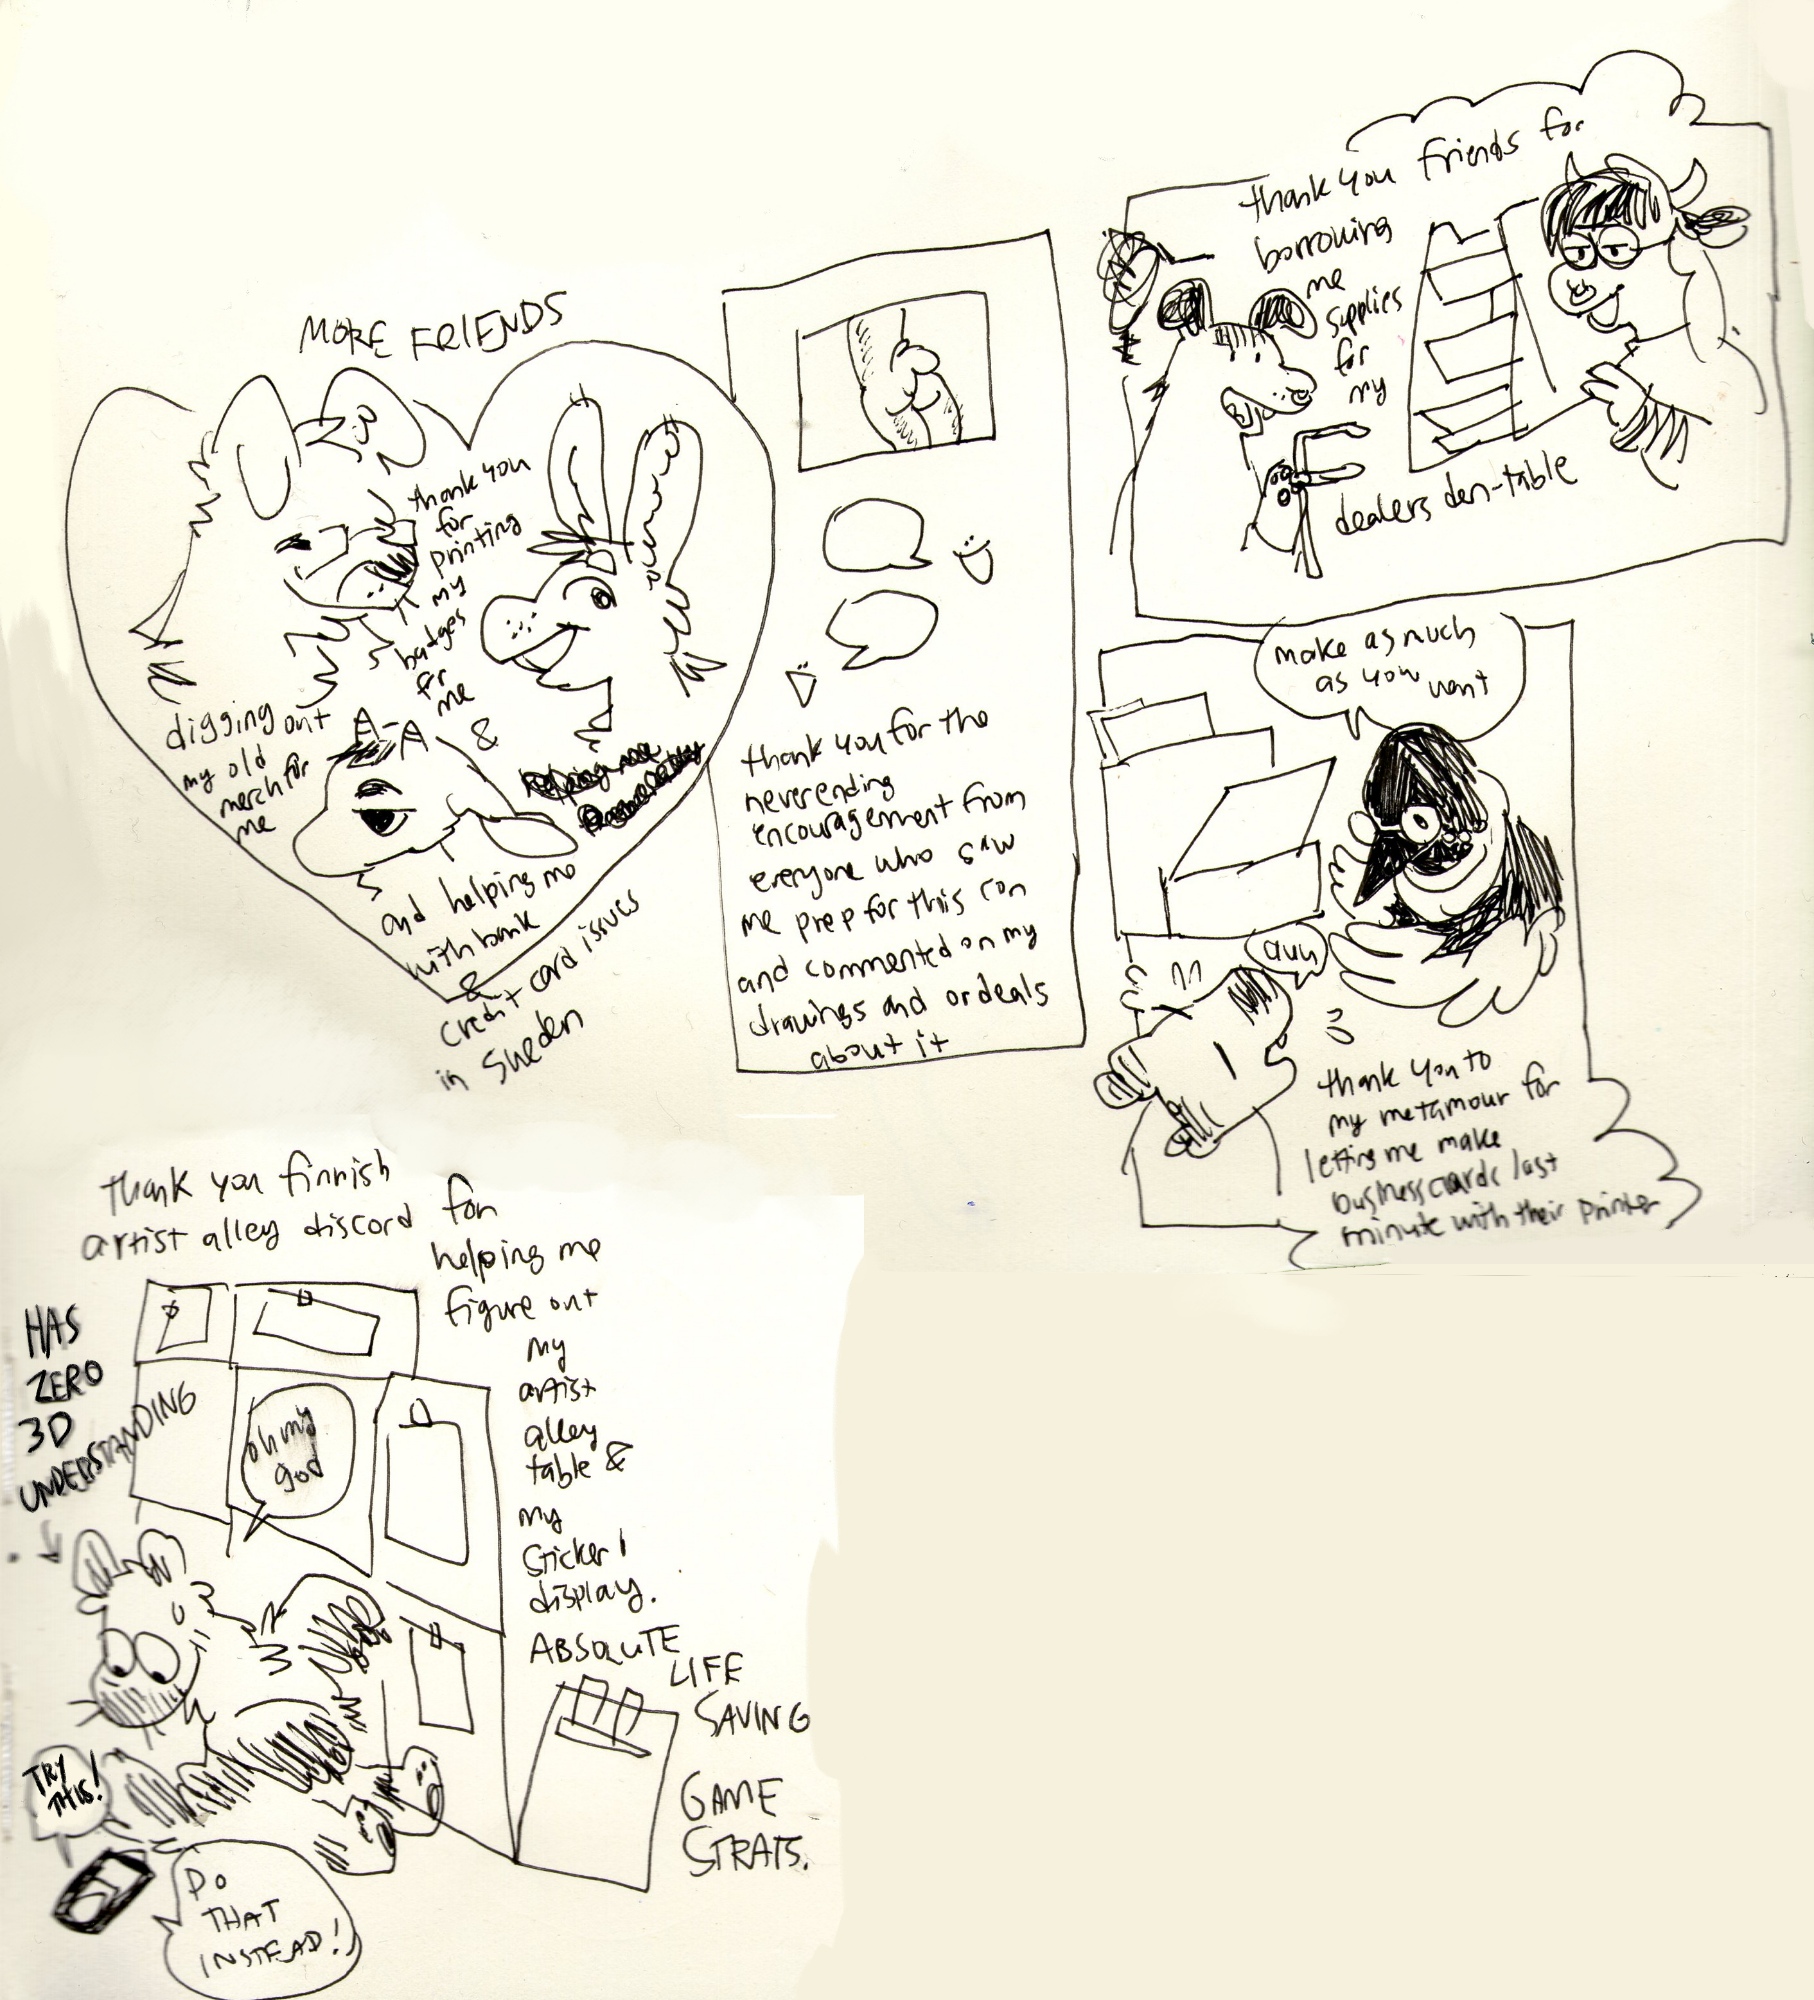 MORE FRIENDS
thank you
for
printing
my
badges
for
me
&
digging out
my old
merch for
me
and helping me
with bank
&
credit card issues
in Sweden
thank you for the
neverending
encouragement from
everyone who saw
me prep for this con
and commented on my
drawings and ordeals
about it
thank you friends for
borrowing
me
supplies
for
my
dealers den-table
make as much
as you want
auu
thank you to
my metamour for
letting me make
business cards last
minute with their printer
thank you finnish
artist alley discord
for
helping me
figure out
my
artist
alley
table &
my
sticker
display.
ABSOLUTE
LIFE
SAVING
GAME
STRATS.
HAS
ZERO
3D
UNDERSTANDING
oh my
god
TRY
THIS!
DO
THAT
INSTEAD!